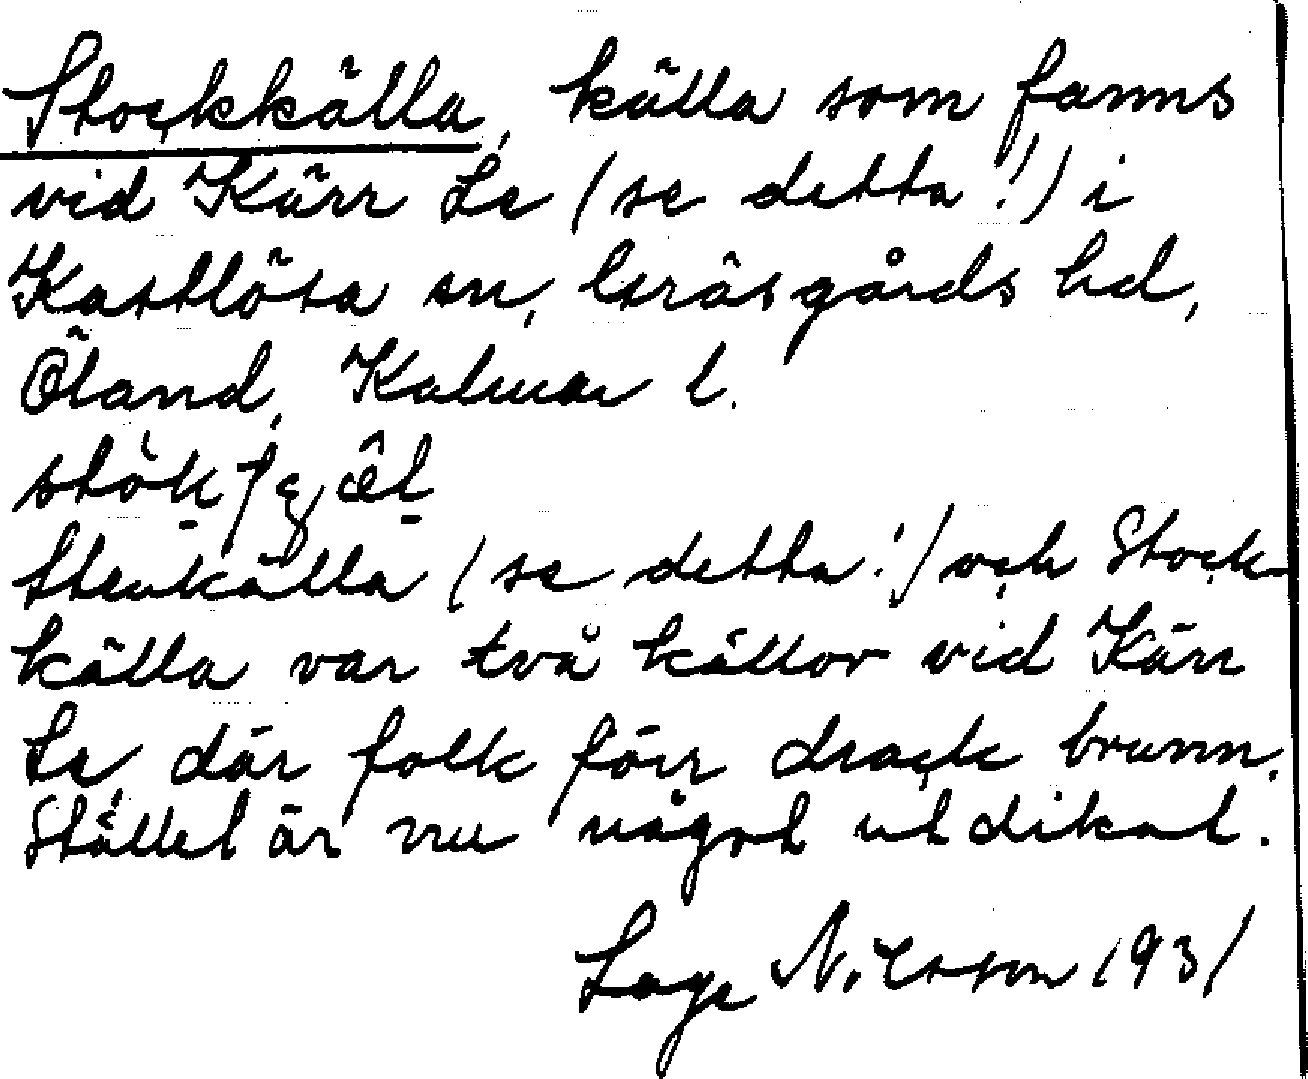 Stockkälla, källa som fanns
vid Kärr Le (se detta!) i
Kastlösa sn, Gräsgårds hd,
Öland, Kalmar l.
Stenkälla (se detta!) och Stock-
källa var två källor vid Kärr
Le, där folk förr drack brunn.
Stället är nu något utdikat.
Lage Nilsson 1931